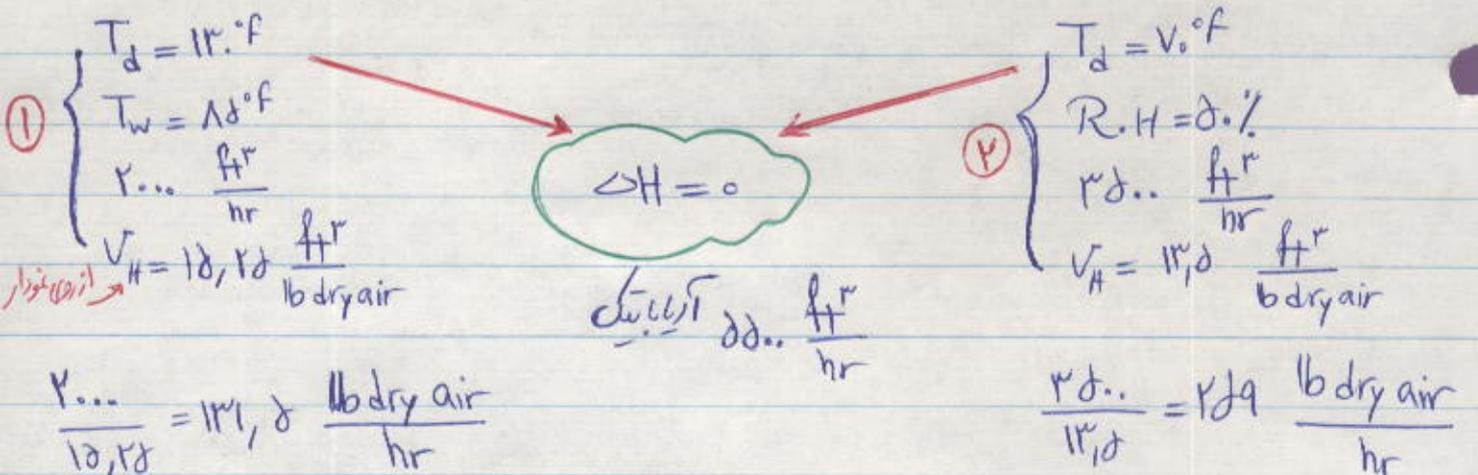 ① T_d = ۱۳۰ °f
T_w = ۸۵ °f
۲۰۰۰ ft³/hr
V_H = ۱۵,۲۵ ft³/lb dry air
از روی نمودار
ΔH = ۰
آدیاباتیک ۵۵۰۰ ft³/hr
② T_d = ۷۰ °f
R.H = ۵۰٪
۳۵۰۰ ft³/hr
V_H = ۱۳,۵ ft³/lb dry air
۲۰۰۰/۱۵,۲۵ = ۱۳۱,۵ lb dry air/hr
۳۵۰۰/۱۳,۵ = ۲۵۹ lb dry air/hr